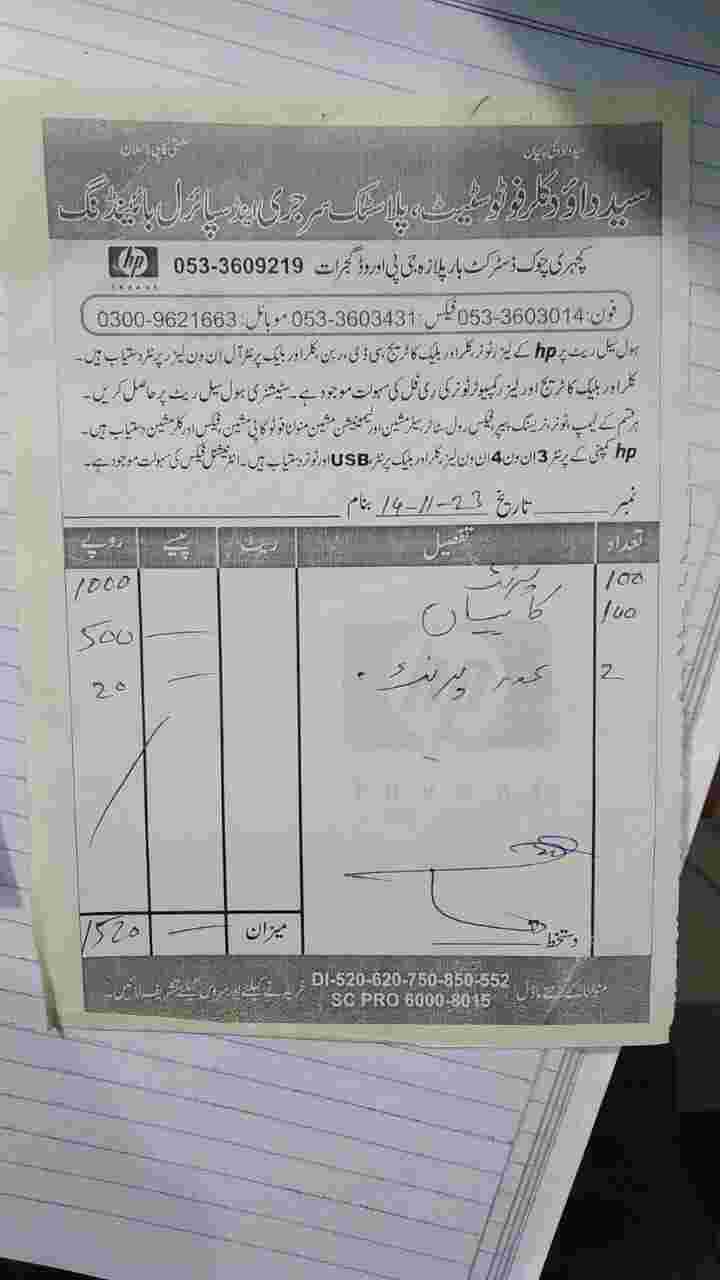 سید داؤد کلر فوٹو سٹیٹ، پلاسٹک سرجری اینڈ سپائرل بائینڈنگ
کچہری چوک ڈسٹرکٹ بار پلازہ جی پی او روڈ گجرات 053-3609219 hp
فون: 053-3603014 فیکس: 053-3603431 موبائل: 0300-9621663
ہول سیل ریٹ پر hp کے لیزر ٹونر، کلر اور بلیک کاٹریج، سی ڈی، ربن، کلر اور بلیک پرنٹر آل ان ون لیزر پرنٹر دستیاب ہیں۔
کلر اور بلیک کاٹریج اور لیزر کمپیوٹر ٹونر کی ری فل کی سہولت موجود ہے۔ سٹیشنری ہول سیل ریٹ پر حاصل کریں۔
ہر قسم کے لیمپ، ٹونر، ٹریسنگ پیپر، فیکس رول، سٹار سیلر مشین اور لیمینیشن مشین منولٹا فوٹو کاپی مشین، فیکس اور کلر مشین دستیاب ہیں۔
hp کمپنی کے پرنٹر 3 ان ون 4 ان ون لیزر، کلر اور بلیک پرنٹر، USB اور ٹونر دستیاب ہیں۔ انٹرنیشنل فیکس کی سہولت موجود ہے۔
نمبر تاریخ 14-11-23 بنام
تعداد تفصیل ریٹ پیسے روپے
100 پرنٹ 1000
100 کاپیاں — 500
2 پرنٹ — 20
میزان — 1520
دستخط
منولٹا کے نئے ماڈل DI-520-620-750-850-552 خریدنے کیلئے اور سروس کیلئے تشریف لائیں۔
SC PRO 6000-8015